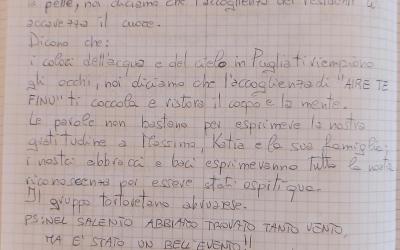 la pelle, noi diciamo che l'accoglienza dei residenti ti
accarezza il cuore.
Dicono che:
i colori dell'acqua e del cielo in Puglia ti riempiono
gli occhi, noi diciamo che l'accoglienza di "AIRE TE
FINU" ti coccola e ristora il corpo e la mente.
Le parole non bastano per esprimere la nostra
gratitudine a Massimo, Katia e la sua famiglia,
i nostri abbracci e baci esprimevano tutta la nostra
riconoscenza per essere stati ospiti qua.
Il gruppo tortoretano
PS: NEL SALENTO ABBIAMO TROVATO TANTO VENTO,
MA E' STATO UN BELL'EVENTO!!